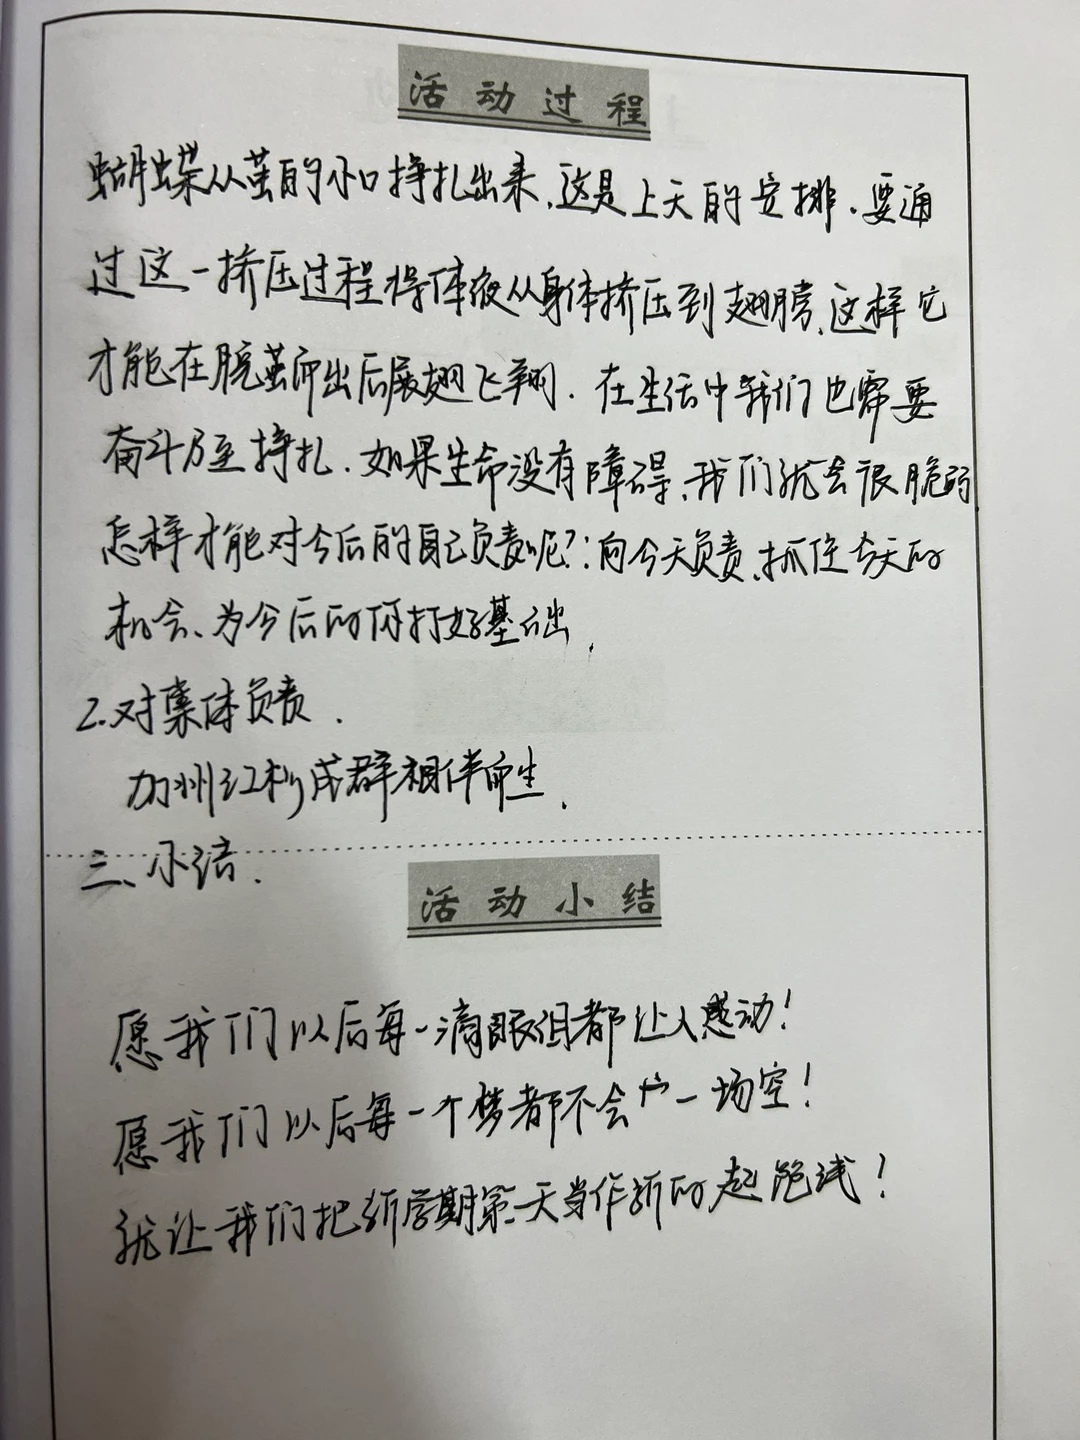 活动过程
蝴蝶从茧的小口挣扎出来,这是上天的安排.要通
过这一挤压过程将体液从身体挤压到翅膀,这样它
才能在脱茧而出后展翅飞翔.在生活中我们也需要
奋斗乃至挣扎.如果生命没有障碍,我们就会很脆弱
怎样才能对今后的自己负责呢?:向今天负责,抓住今天的
机会、为今后的你打好基础.
2.对集体负责.
加州红杉成群相伴而生.
三、小结.
活动小结
愿我们以后每一滴眼泪都让人感动!
愿我们以后每一个梦都不会 一场空!
就让我们把新学期第一天当作新的起跑线!